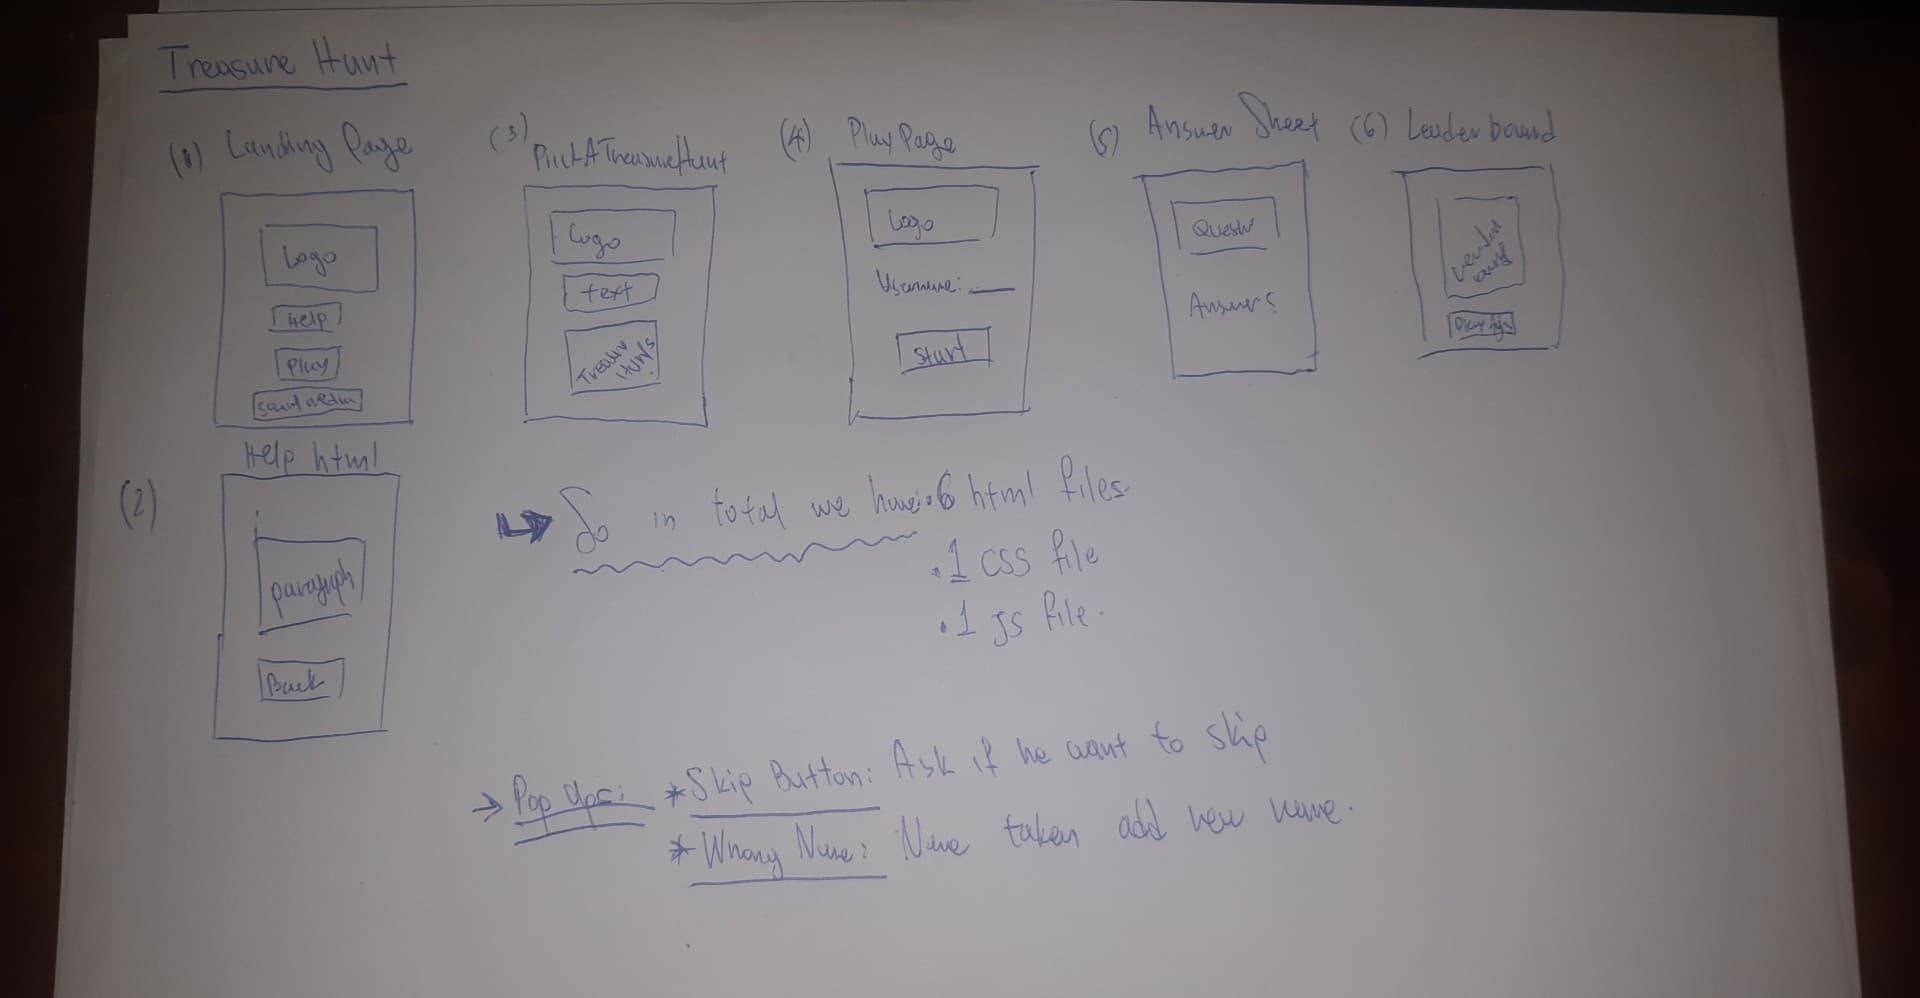 Treasure Hunt
(1) Landing Page
Logo
Help
Play
Social media
(2)
Help html
paragraph
Back
(3)
Pick A TreasureHunt
Logo
text
Treasur
Hunts
(4) Play Page
Logo
Username:
Start
(5) Answer Sheet
Quest
Answers
(6) Leaderboard
Leader
board
Play
So in total we have: 6 html files.
. 1 CSS file
. 1 JS file.
→ Pop Ups: * Skip Button: Ask if he want to skip
* Wrong Name: Name taken add new name.